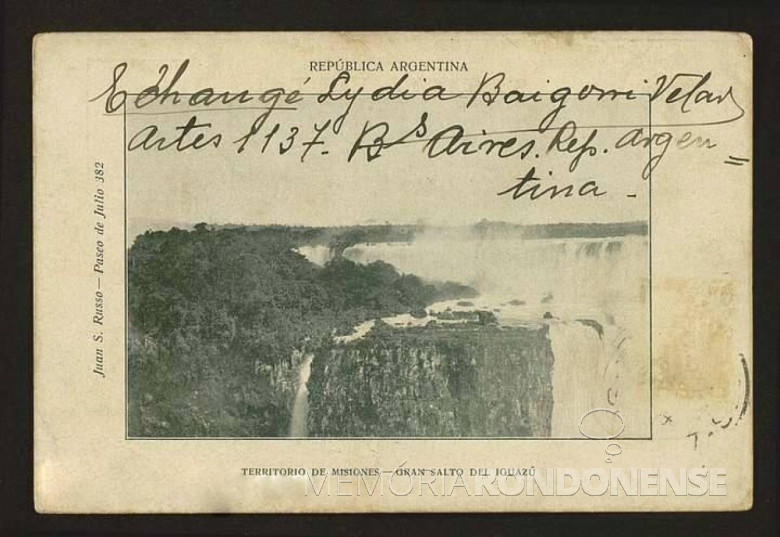 REPÚBLICA ARGENTINA
Echangé Lydia Baigorri Velar
Artes 1137. Bs Aires. Rep. Argen=
tina.
Juan S. Russo — Paseo de Julio 382
TERRITORIO DE MISIONES — GRAN SALTO DEL IGUAZÚ
MEMÓRIARONDONENSE